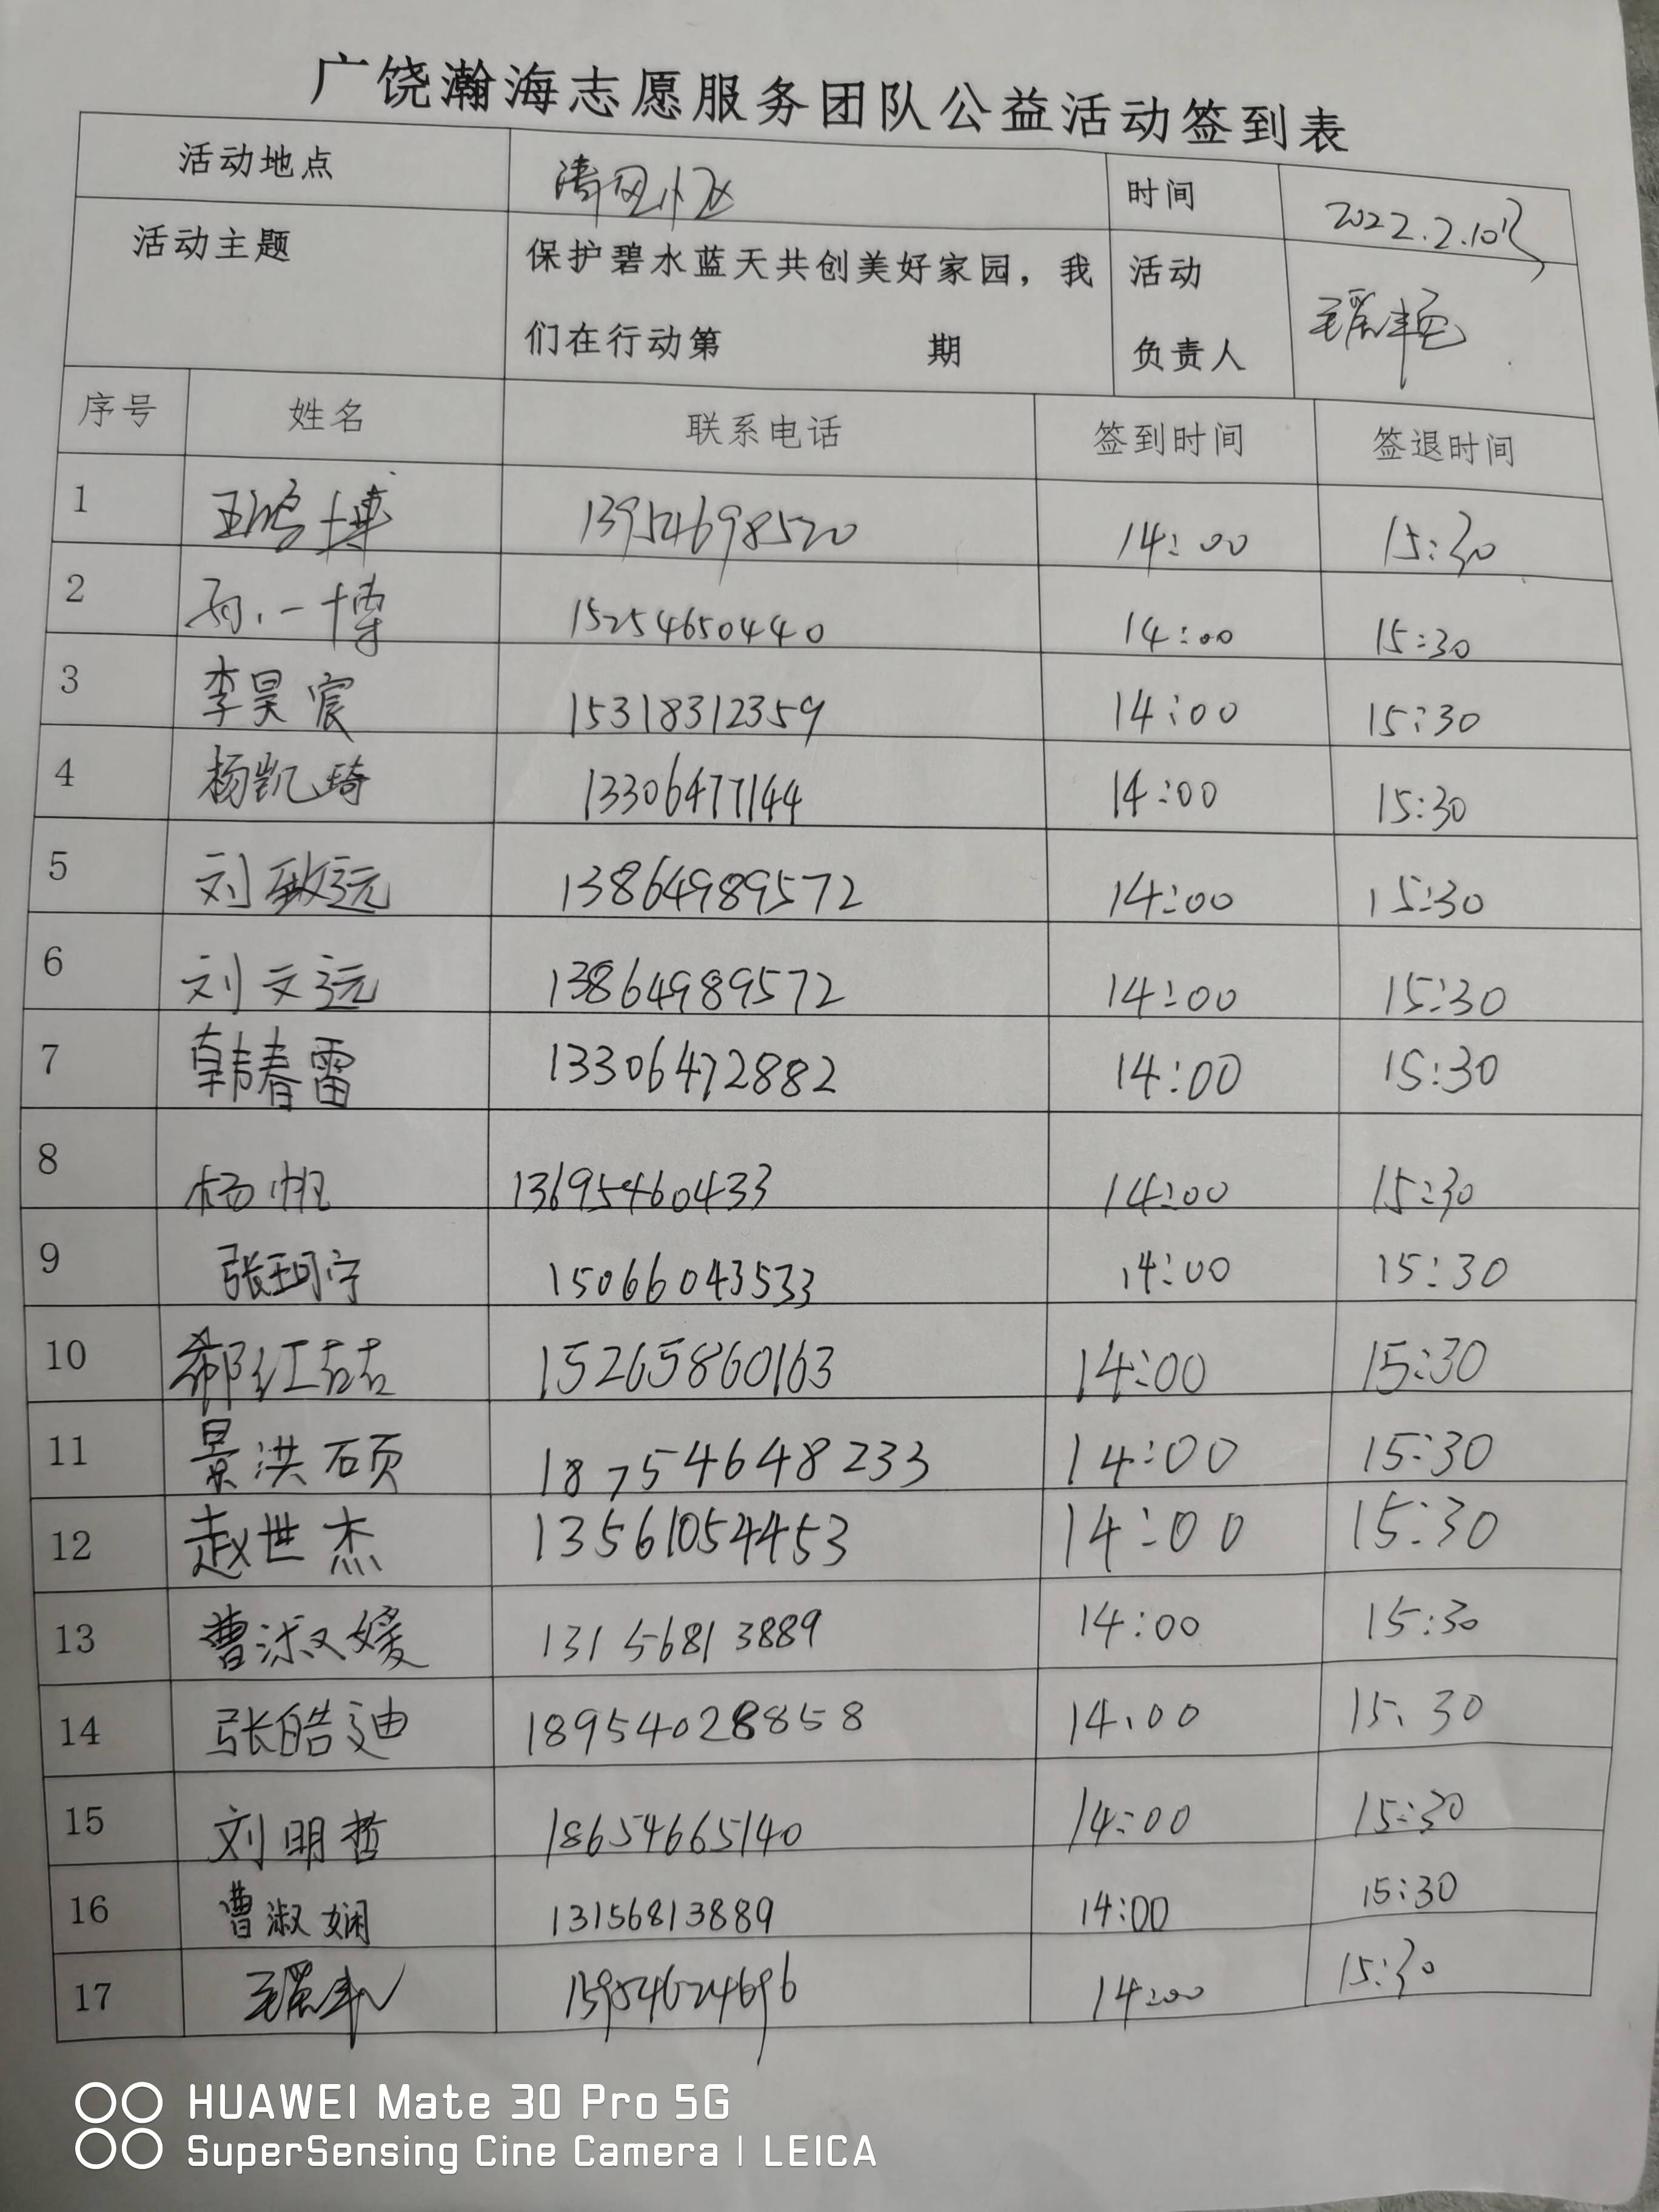 广饶瀚海志愿服务团队公益活动签到表
活动地点 清风小区 时间 2022.2.10日
活动主题 保护碧水蓝天共创美好家园，我们在行动第 期 活动负责人
序号 姓名 联系电话 签到时间 签退时间
1 王鸿博 13954698520 14:00 15:30
2 孙一博 15254650440 14:00 15:30
3 李昊宸 15318312359 14:00 15:30
4 杨凯琦 13306477144 14:00 15:30
5 刘敏远 13864989572 14:00 15:30
6 刘文远 13864989572 14:00 15:30
7 韩春雷 13306472882 14:00 15:30
8 杨帆 13695460433 14:00 15:30
9 张珂宁 15066043533 14:00 15:30
10 郗红喆 15265860163 14:00 15:30
11 景洪硕 18754648233 14:00 15:30
12 赵世杰 13561054453 14:00 15:30
13 曹淑媛 13156813889 14:00 15:30
14 张皓迪 18954028858 14:00 15:30
15 刘明哲 18654665140 14:00 15:30
16 曹淑娴 13156813889 14:00 15:30
17 14:00 15:30
HUAWEI Mate 30 Pro 5G
SuperSensing Cine Camera | LEICA